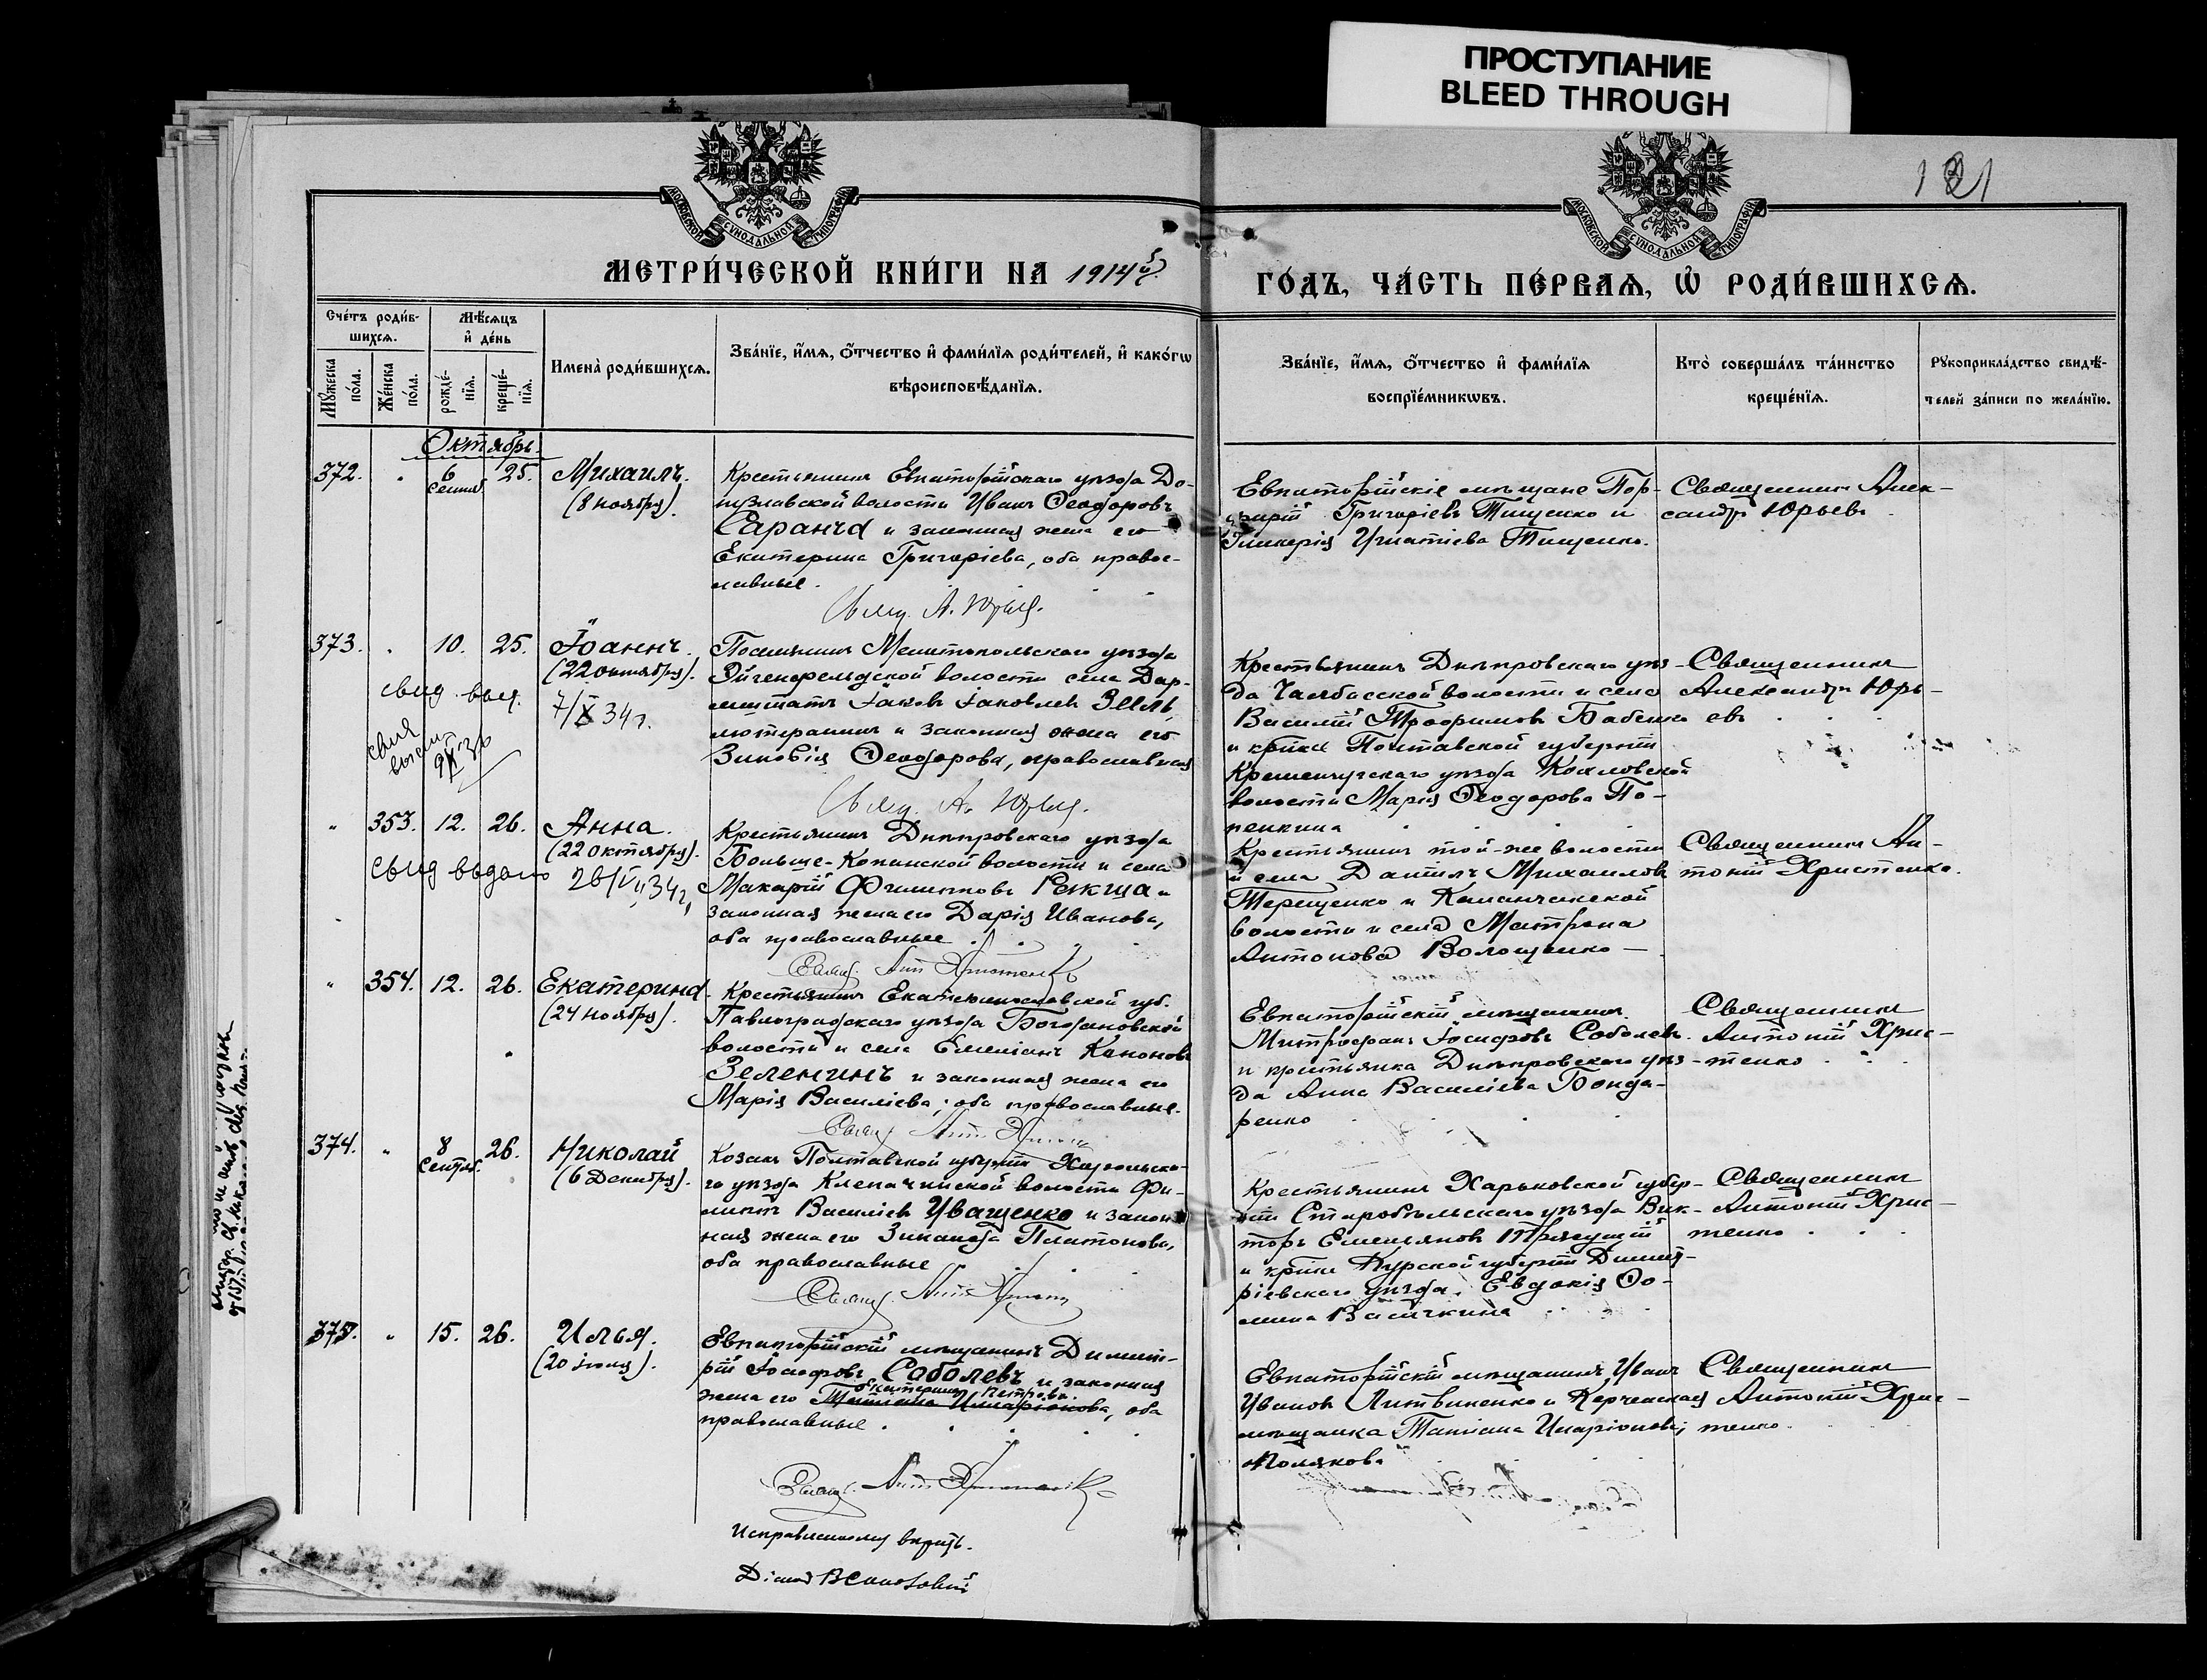 ПРОСТУПАНИЕ
BLEED THROUGH
МОСКОВСКОЙ СУНОДАЛЬНОЙ ТИПОГРАФІИ
МОСКОВСКОЙ СУНОДАЛЬНОЙ ТИПОГРАФІИ
МЕТРИ́ЧЕСКОЙ КНИ́ГИ НА 1914й
ГО́ДЪ, ЧА́СТЬ ПЕ́РВАЯ, Ѡ РОДИ́ВШИХСЯ.
Сче́тъ роди́в-
шихся.
Мꙋжеска по́ла.
Же́нска по́ла.
Мѣ́сяцъ и де́нь
рожде́-
нія.
креще́-
нія.
Имена̀ роди́вшихся.
Зва́нїе, и́мя, о́тчество и фами́лїя роди́телей, и како́гѡ
вѣроисповѣ́данїя.
Зва́нїе, и́мя, о́тчество и фами́лїя
воспрїе́мникѡвъ.
Кто̀ соверша́лъ та́инство
креще́нїя.
Рꙋкоприкла́дство свидѣ́-
телей за́писи по жела́нїю.
Октябрь.
372. " 6 сентяб. 25. Михаилъ.
(8 ноября).
Крестьянинъ Евпаторійскаго уѣзда До-
нузлавской волости Иванъ Ѳеодоровъ
Саранча и законная жена его
Екатерина Григоріева, оба право-
славные.
Евпаторійскіе мѣщане Пор-
фирій Григоріевъ Тищенко и
Гликерія Игнатіева Тищенко.
Священникъ Алек-
сандръ Юрьевъ.
Свящ. А. Юрьев.
373. " 10. 25. Іоаннъ.
(22 октября).
Поселянинъ Мелитопольскаго уѣзда
Эйгенфельдской волости села Дар-
мштатъ Іаковъ Іаковлевъ Зейль,
лютеранинъ и законная жена его
Зиновія Ѳеодорова, православная
свид. выд.
7/X 34 г.
Крестьянинъ Днѣпровскаго уѣз-
да Чалбасской волости и села
Василій Трофимовъ Бабенко
и кр-ка Полтавской губерніи
Кременчугскаго уѣзда Козловской
волости Марія Ѳеодорова По-
пенкина
Священникъ
Александръ Юрь-
евъ
Свящ. А. Юрьев.
" 353. 12. 26. Анна.
(22 октября).
свид выдано
Крестьянинъ Днѣпровскаго уѣзда
Больше-Копанской волости и села
Макарій Филипповъ Рекша и
законная жена его Дарія Иванова,
оба православные
Крестьянинъ той-же волости
и села Даніилъ Михаиловъ
Терещенко и Каланчакской
волости и села Матрона
Антонова Волощенко
Священникъ Ан-
тоній Христенко.
" 354. 12. 26. Екатерина
(24 ноября).
Крестьянинъ Екатеринославской губ.
Павлоградскаго уѣзда Богдановской
волости и села Емеліанъ Кононовъ
Зеленинъ и законная жена его
Марія Василіева; оба православные.
Евпаторійскій мѣщанинъ
Митрофанъ Іосифовъ Соболевъ
и крестьянка Днѣпровскаго уѣз-
да Анна Василіева Бонда-
ренко
Священникъ
Антоній Хрис-
тенко
374. " 8 Сентяб. 26. Николай
(6 Декабря).
Козакъ Полтавской губерніи Хорольска-
го уѣзда Клепачинской волости Фи-
липпъ Василіевъ Иващенко и закон
ная жена его Зинаида Платонова,
оба православные
Крестьянинъ Харьковской губер-
ніи Старобѣльскаго уѣзда Вик-
торъ Емельяновъ
и кр-ка Курской губерніи Димит-
ріевскаго уѣзда Евдокія Ѳо-
мина Васичкина
Священникъ
Антоній Хрис-
тенко
375. " 15. 26. Илья.
(20 іюля).
Евпаторійскій мѣщанинъ Димит-
рій Іосифовъ Соболевъ и законная
Екатерина Петрова.
жена его Татіана Илларіонова, оба
православные
Евпаторійскій мѣщанинъ Иванъ
Ивановъ Литвиненко и Керченская
мѣщанка Татіана Иларіонова
Полякова
Священникъ
Антоній Хрис-
тенко
Исправленному вѣрить.